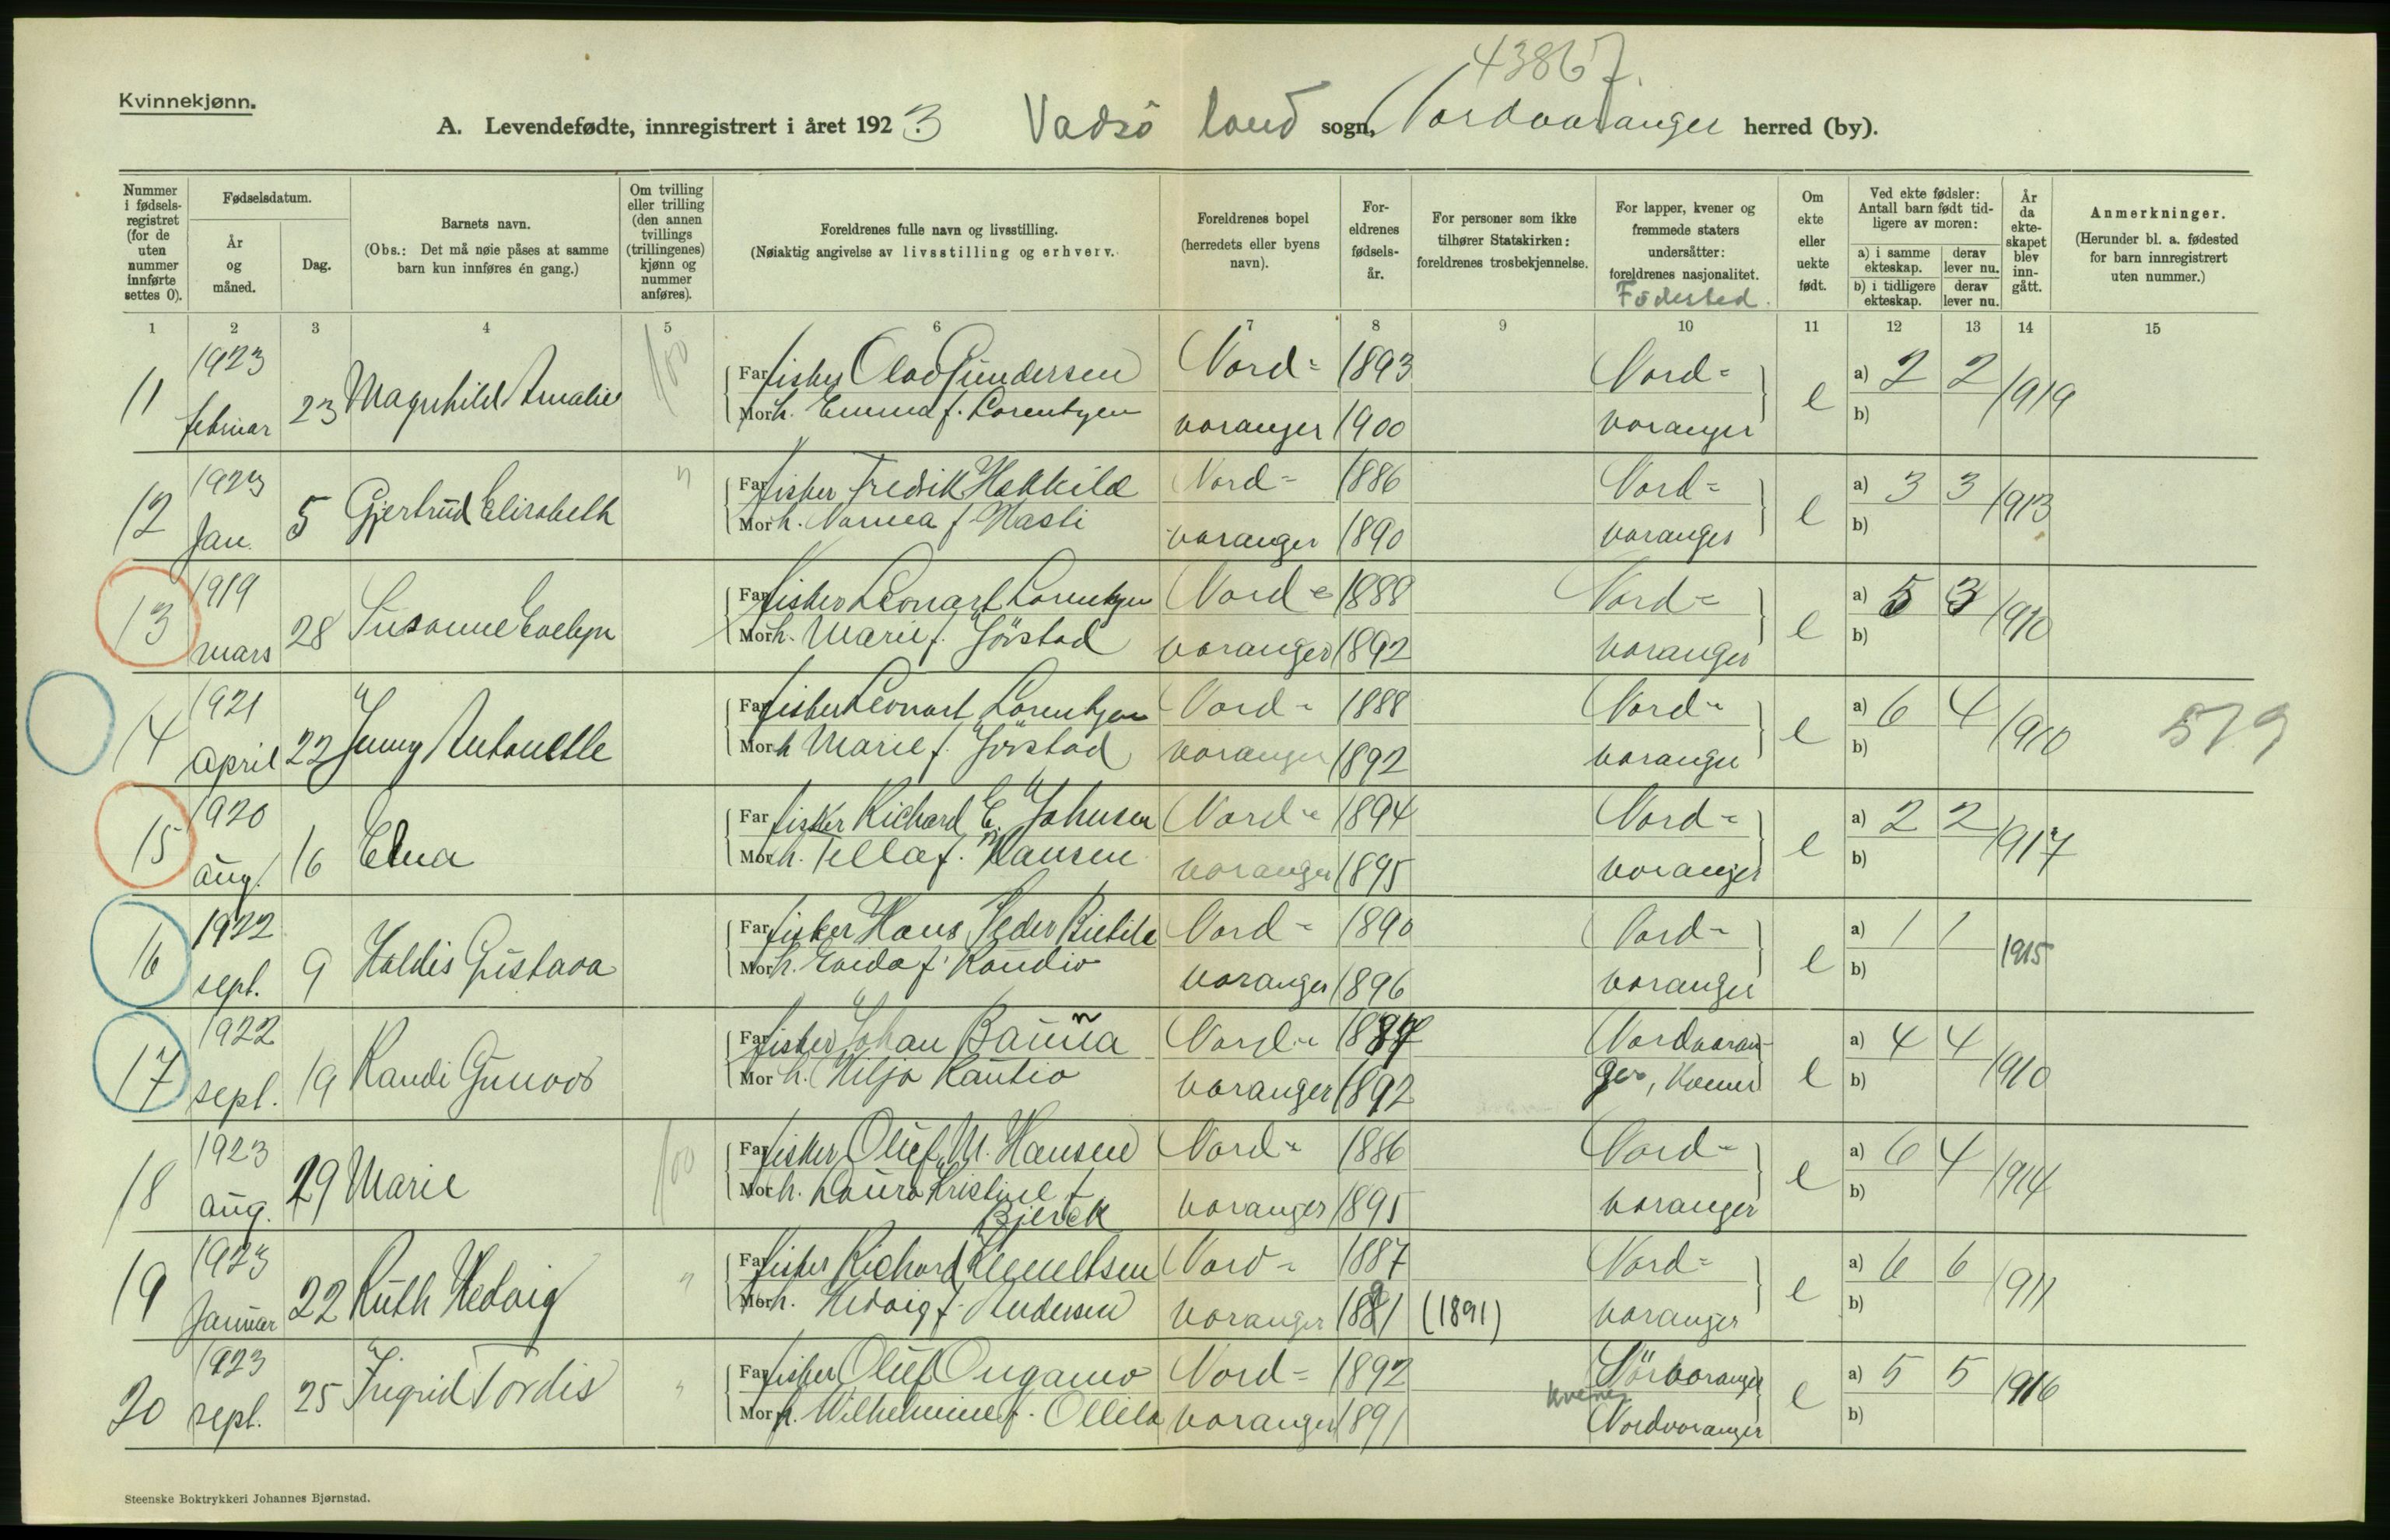 43867.
Kvinnekjønn.
A. Levendefødte, innregistrert i året 1923 Vadsö land sogn, Nordvaranger herred (by).
Nummer i fødsels-registret (for de uten nummer innførte settes 0).
Fødselsdatum.
År og måned.
Dag.
Barnets navn.
(Obs.: Det må nøie påses at samme barn kun innføres én gang.)
Om tvilling eller trilling (den annen tvillings (trillingenes) kjønn og nummer anføres).
Foreldrenes fulle navn og livsstilling.
(Nøiaktig angivelse av livsstilling og erhverv.
Foreldrenes bopel (herredets eller byens navn).
For-eldrenes fødsels-år.
For personer som ikke tilhører Statskirken: foreldrenes trosbekjennelse.
For lapper, kvener og fremmede staters undersåtter: foreldrenes nasjonalitet.
Födested.
Om ekte eller uekte født.
Ved ekte fødsler: Antall barn født tid-ligere av moren:
a) i samme ekteskap. derav lever nu.
b) i tidligere ekteskap. derav lever nu.
År da ekte-skapet blev inn-gått.
Anmerkninger.
(Herunder bl. a. fødested for barn innregistrert uten nummer.)
1 2 3 4 5 6 7 8 9 10 11 12 13 14 15
11 1923 februar 23 Magnhild Amalie 100
Far fisker Olav Gundersen Nord- 1893 Nord- e a) 2 2 1919
Mor h. Emma f. Lorentzen varanger 1900 varanger b)
12 1923 Jan. 5 Gjertrud Elisabeth "
Far fisker Fredrik Hekkilä Nord- 1886 Nord- e a) 3 3 1913
Mor h. f. varanger 1890 varanger b)
13 1919 mars 28 Susanne Evelyn
Far fisker Leonart Lorentzen Nord- 1888 Nord- e a) 5 3 1910
Mor h. Marie f. Jörstad varanger 1892 varanger b)
14 1921 April 22 Jenny Antonette
Far fisker Leonart Lorentzen Nord- 1888 Nord- e a) 6 4 1910 579
Mor h Marie f. Jörstad varanger 1892 varanger b)
15 1920 aug. 16 Elna
Far fisker Richard E. Johnsen Nord- 1894 Nord- e a) 2 2 1917
Mor h. Tella f. Hansen varanger 1895 varanger b)
16 1922 sept. 9 Haldis Gustava
Far fisker Hans Peder Nord- 1890 Nord- e a) 1 1 1915
Mor h. f. varanger 1896 varanger b)
17 1922 sept. 19 Randi Gunvor
Far fisker Johan Banna Nord- Nordvaran- e a) 4 4 1910
Mor h. Hilja Rautio varanger 1892 ger, Kvener b)
18 1923 aug. 29 Marie 100
Far fisker Oluf M. Hansen Nord- 1886 Nord- e a) 6 4 1914
Mor h. Laura Kristine f. varanger 1895 varanger b)
Bjerck
19 1923 Januar 22 Ruth Hedvig "
Far fisker Richard Klemetsen Nord- 1887 Nord- e a) 6 6 1911
Mor h. Hedvig f. Andersen varanger 1891 (1891) varanger b)
20 1923 sept. 25 Ingrid Tordis "
Far fisker Oluf Ongamo Nord- 1892 Sörvaranger e a) 5 5 1916
kvener
Mor h. Wilhelmine f. Ollila varanger 1891 Nordvaranger b)
Steenske Boktrykkeri Johannes Bjørnstad.